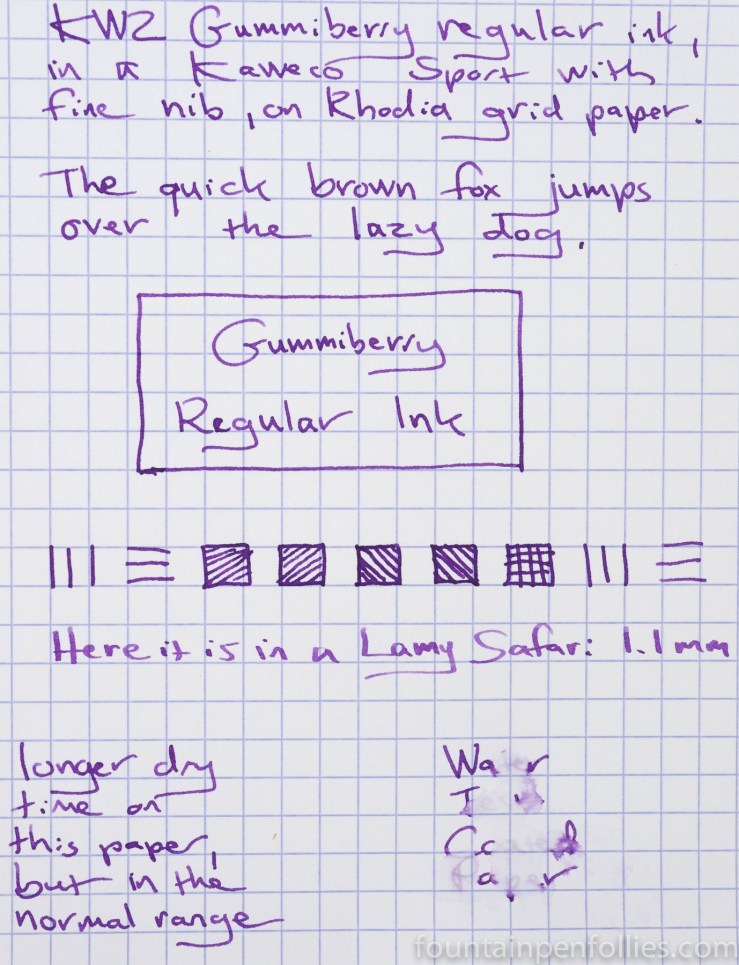 KWZ Gummiberry regular ink,
in a Kaweco Sport with
fine nib, on Rhodia grid paper.
The quick brown fox jumps
over the lazy dog.
Gummiberry
Regular Ink
Here it is in a Lamy Safari 1.1mm
longer dry
time on
this paper,
but in the
normal range
Water
Coated
Paper
fountainpenfollies.com